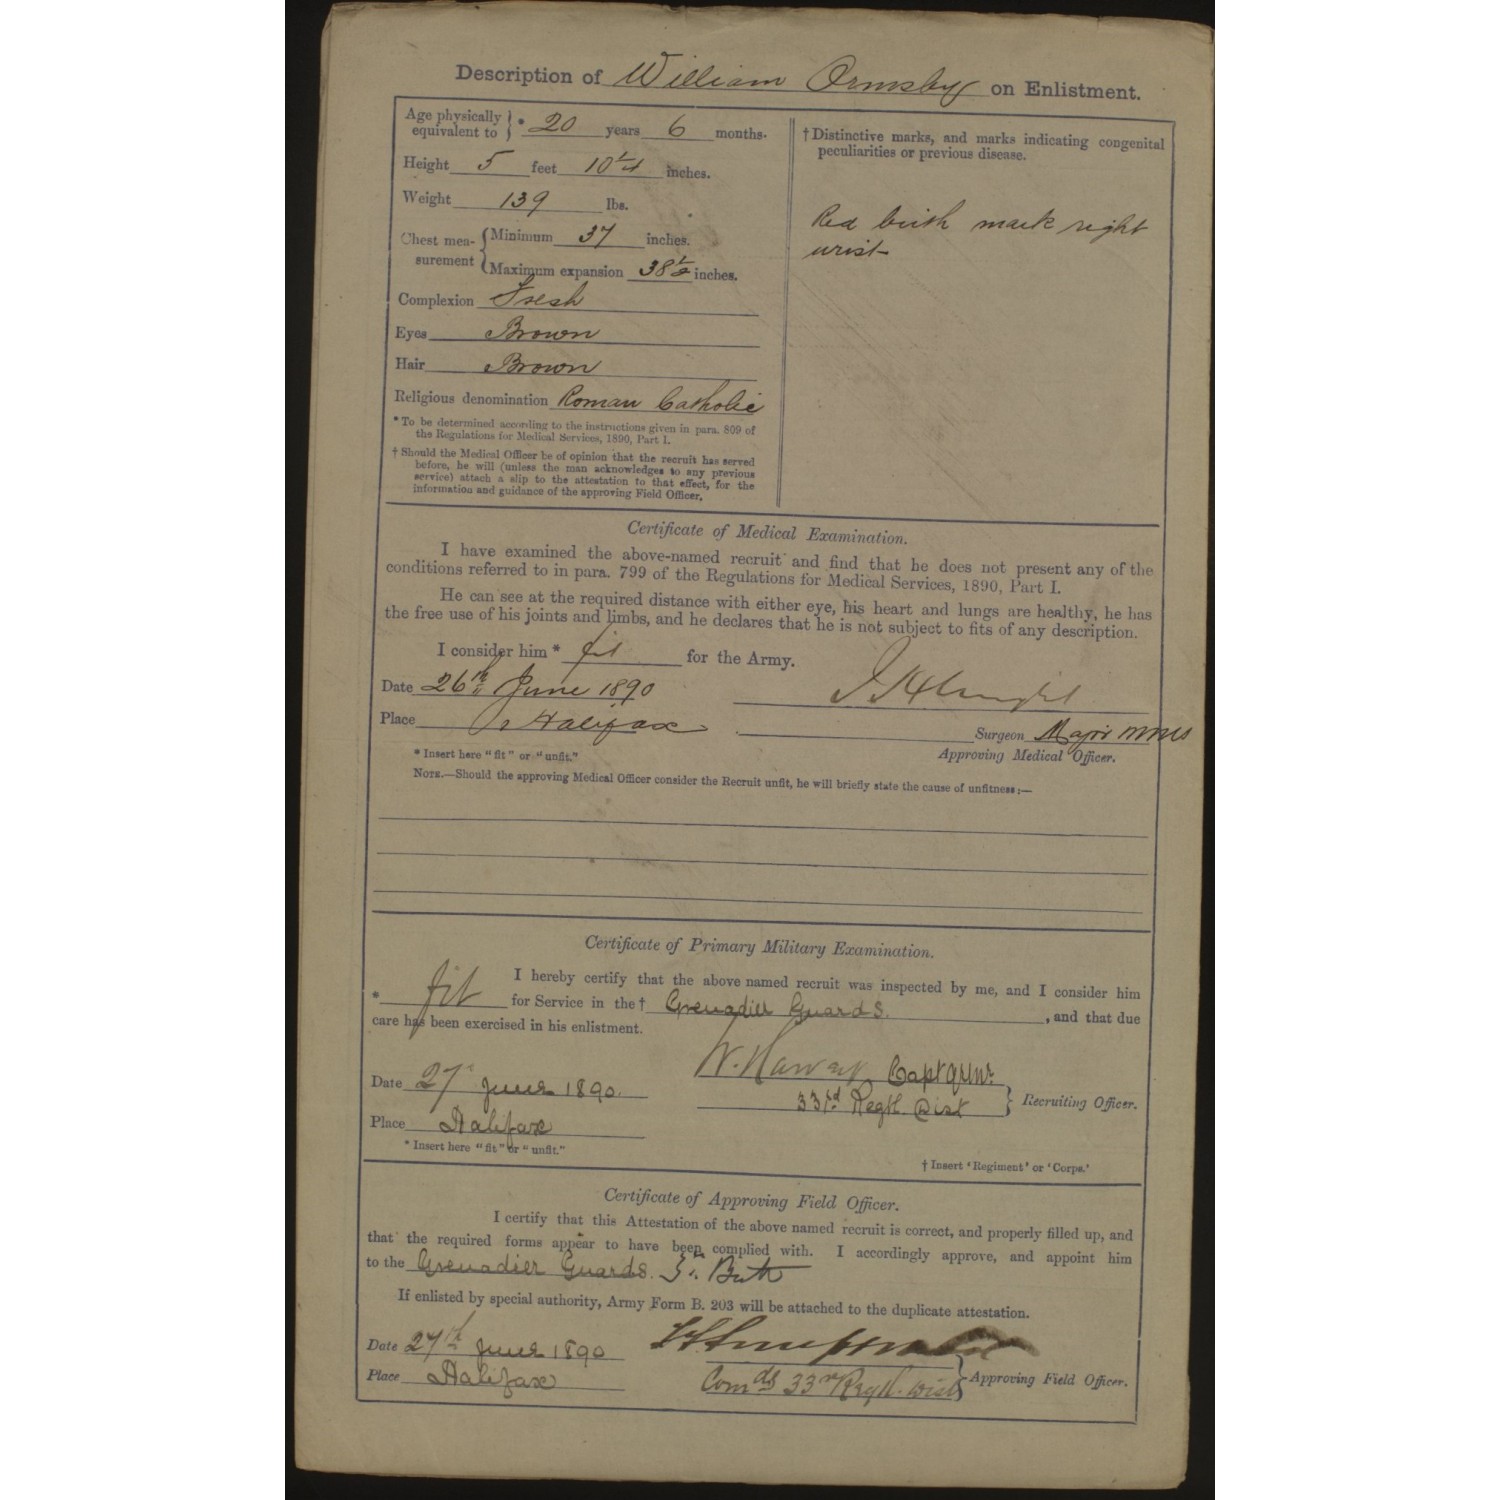 Description of William Ormsby on Enlistment.
Age physically equivalent to } * 20 years 6 months.
Height 5 feet 10 1/4 inches.
Weight 139 lbs.
Chest measurement { Minimum 37 inches.
Maximum expansion 38 1/2 inches.
Complexion Fresh
Eyes Brown
Hair Brown
Religious denomination Roman Catholic
* To be determined according to the instructions given in para. 809 of
the Regulations for Medical Services, 1890, Part I.
† Should the Medical Officer be of opinion that the recruit has served
before, he will (unless the man acknowledges to any previous
service) attach a slip to the attestation to that effect, for the
information and guidance of the approving Field Officer.
† Distinctive marks, and marks indicating congenital
peculiarities or previous disease.
Red birth mark right
wrist
Certificate of Medical Examination.
I have examined the above-named recruit and find that he does not present any of the
conditions referred to in para. 799 of the Regulations for Medical Services, 1890, Part I.
He can see at the required distance with either eye, his heart and lungs are healthy, he has
the free use of his joints and limbs, and he declares that he is not subject to fits of any description.
I consider him * fit for the Army.
Date 26th June 1890
Place Halifax
Surgeon Major
Approving Medical Officer.
* Insert here "fit" or "unfit."
NOTE.—Should the approving Medical Officer consider the Recruit unfit, he will briefly state the cause of unfitness:—
Certificate of Primary Military Examination.
I hereby certify that the above named recruit was inspected by me, and I consider him
* fit for Service in the † Grenadier Guards. , and that due
care has been exercised in his enlistment.
Date 27 June 1890.
Place Halifax
* Insert here "fit" or "unfit."
W. Capt QrMr
33rd Regtl. Dist } Recruiting Officer.
† Insert 'Regiment' or 'Corps.'
Certificate of Approving Field Officer.
I certify that this Attestation of the above named recruit is correct, and properly filled up, and
that the required forms appear to have been complied with. I accordingly approve, and appoint him
to the Grenadier Guards.
If enlisted by special authority, Army Form B. 203 will be attached to the duplicate attestation.
Date 27th June 1890
Place Halifax
Comdg 33rd Regtl. Dist } Approving Field Officer.